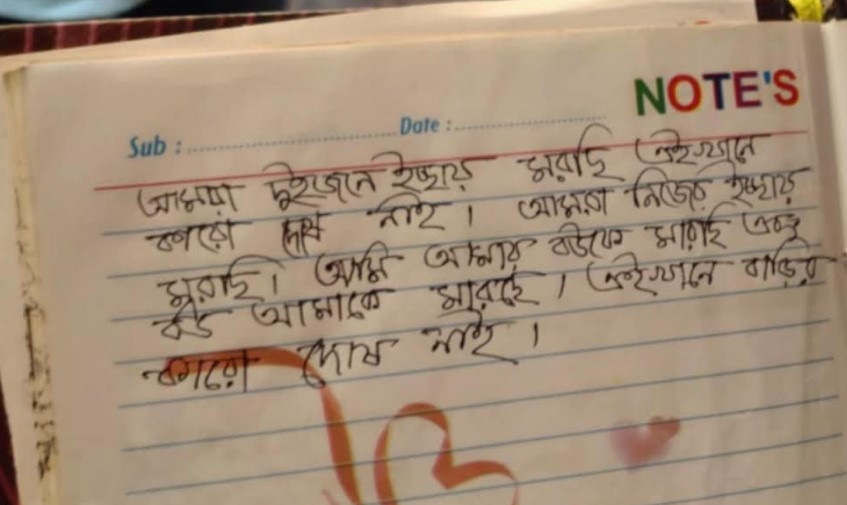 NOTE'S
Sub : Date :
আমরা দুইজনে ইচ্ছায় মরছি এইখানে
কারো দোষ নাই । আমরা নিজের ইচ্ছায়
মরছি । আমি আমার বউকে মারছি এবং
বউ আমাকে মারছে । এইখানে বাড়ির
কারো দোষ নাই ।